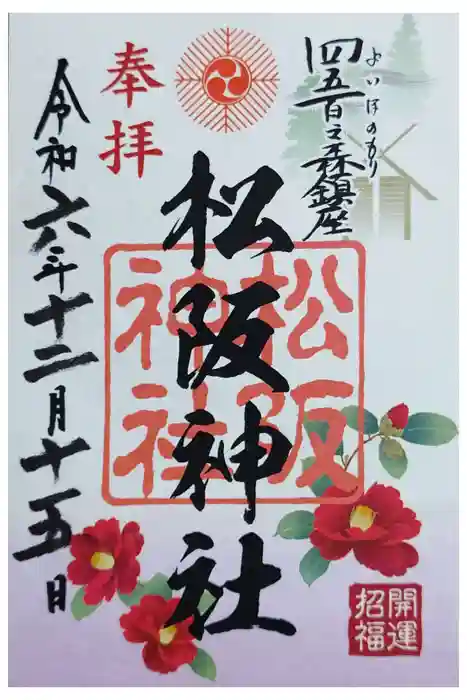 四五百之森鎮座
よいほのもり
奉拝
松阪神社
松阪神社
令和六年十二月十五日
開運招福